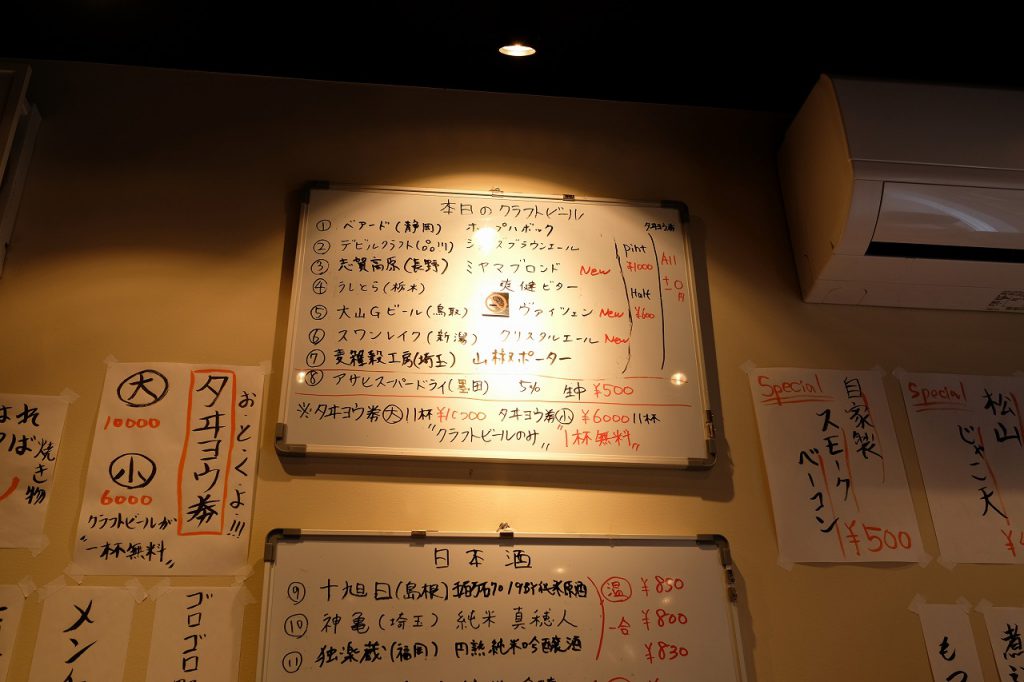 本日のクラフトビール
タヰヨウ券
① ベアード(静岡) ホップハボック
② デビルクラフト(品川) ブラウンエール
③ 志賀高原(長野) ミヤマブロンド New
④ うしとら(栃木) 爽健ビター
⑤ 大山Gビール(鳥取) ヴァイツェン New
⑥ スワンレイク(新潟) クリスタルエール New
⑦ 麦雑穀工房(埼玉) 山椒ポーター
pint
¥1000
Half
¥600
All
±0
円
⑧ アサヒスーパードライ(墨田) 5% 生中 ¥500
※タヰヨウ券(大)11杯¥10000 タヰヨウ券(小)¥6000 11杯
"クラフトビールのみ" 1杯無料"
大
10000
小
6000
クラフトビールが
"一杯無料"
タヰヨウ券
おとくよ!!!
焼き物
Special
自家製
スモーク
ベーコン
¥500
Special
松山
じゃこ天
日本酒
⑨ 十旭日(島根) 純米原酒 温 ¥850
⑩ 神亀(埼玉) 純米 真穂人 一合 ¥800
⑪ 独楽蔵(福岡) 円熟純米吟醸酒 ¥830
メン
ゴロゴロ
もつ
煮